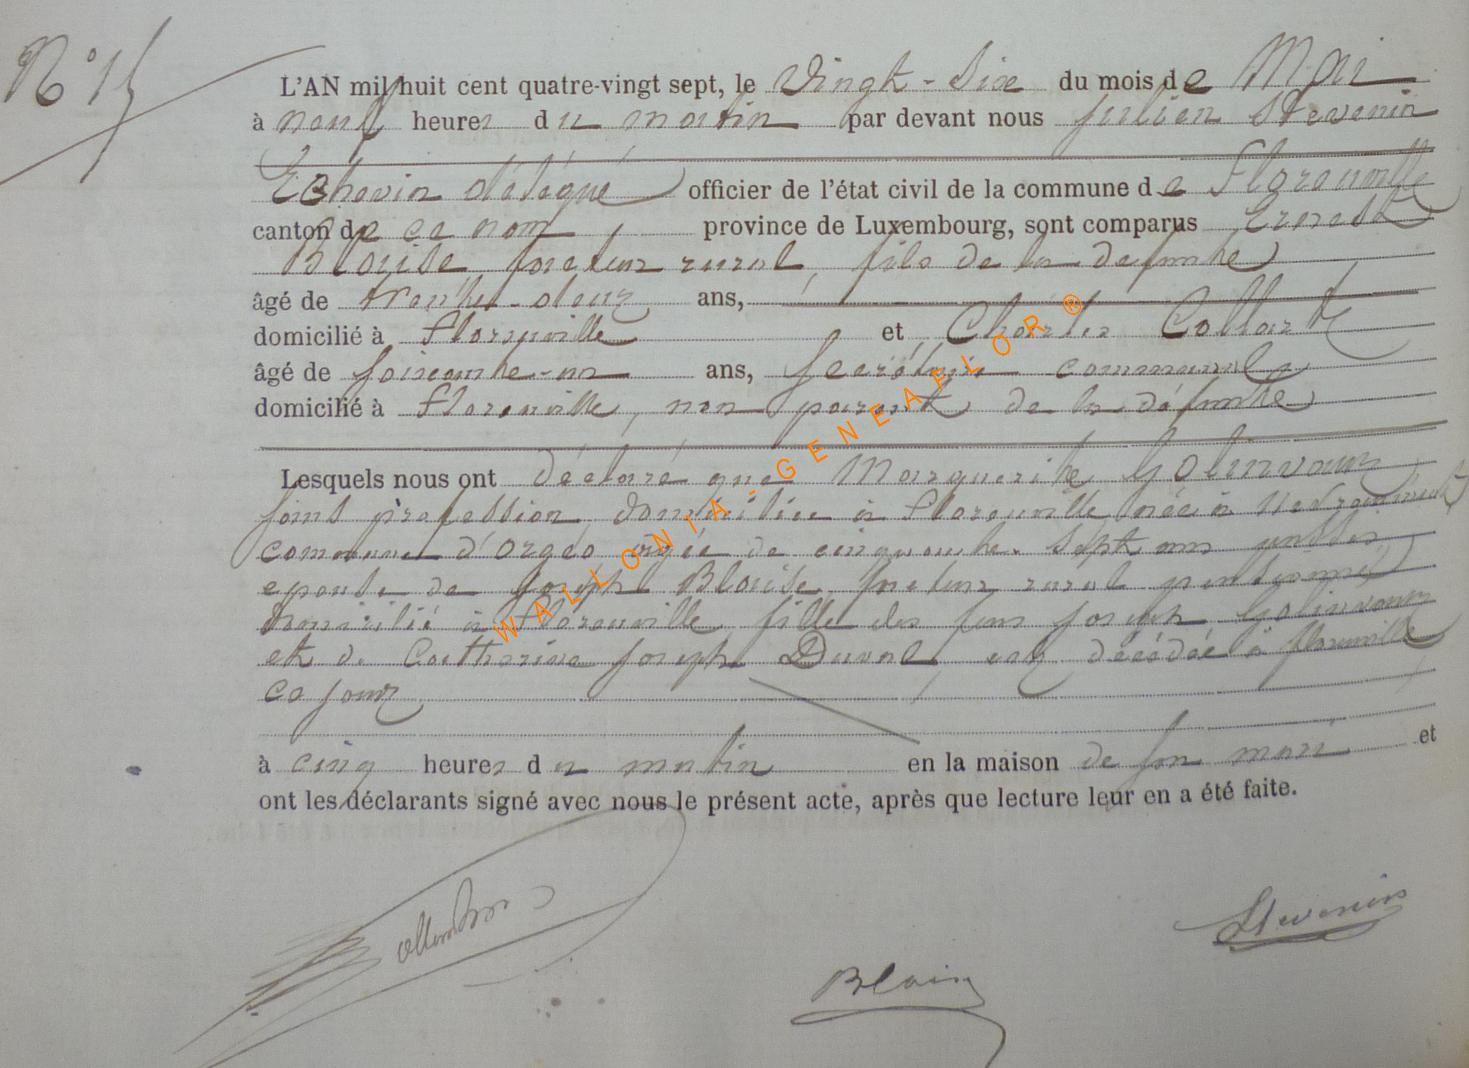 N° 15
L'AN mil huit cent quatre-vingt sept, le Vingt-Six du mois de Mai
à neuf heures du matin par devant nous Julien Stevenin
Echevin délégué officier de l'état civil de la commune de Florenville
canton de ce nom, province de Luxembourg, sont comparus Ernest
Blaise, facteur rural, fils de la defunte
âgé de trente-deux ans,
domicilié à Florenville et Charles Collart
âgé de soixante-un ans, secrétaire communal
domicilié à Florenville, non parent de la défunte
Lesquels nous ont déclaré que Marguerite Golinvaux
sans profession, domiciliée à Florenville née à
commune d'Orgéo âgée de cinquante-sept ans
epouse de Joseph Blaise, facteur rural pensionné
domicilié à Florenville, fille des feus Joseph Golinvaux
et de Catherine Joseph Duval, est décédée à Florenville
ce jour
à cinq heures du matin en la maison de son mari et
ont les déclarants signé avec nous le présent acte, après que lecture leur en a été faite.
Stevenin
Blaise
WALLONIA-GENEAFLOR ®